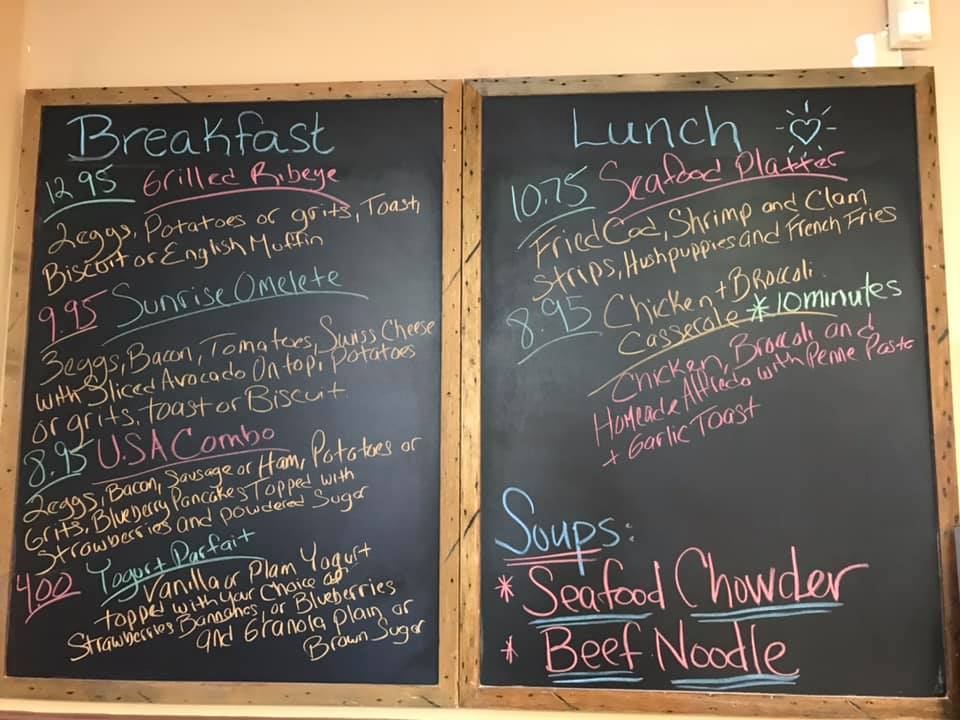 Breakfast
12.95 Grilled Ribeye
2 eggs, Potatoes or grits, Toast,
Biscuit or English Muffin
9.95 Sunrise Omelete
3 eggs, Bacon, Tomatoes, Swiss Cheese
with Sliced Avocado On top, potatoes
or grits, toast or Biscuit
8.95 USA Combo
2 eggs, Bacon, Sausage or Ham, Potatoes or
Grits, Blueberry Pancakes Topped with
Strawberries and powdered Sugar
4.00 Yogurt Parfait
Vanilla or Plam Yogurt
topped with your Choice of
Strawberries, Bannanas, or Blueberries
and Granola Plain, or
Brown Sugar
Lunch
10.75 Seafood Platter
Fried Cod, Shrimp and Clam
Strips, Hushpuppies and French Fries
8.95 Chicken + Broccoli
Casserole *10 minutes
Chicken, Broccoli and
Homeade Alfredo with Penne Pasta
+ Garlic Toast
Soups:
* Seafood Chowder
* Beef Noodle